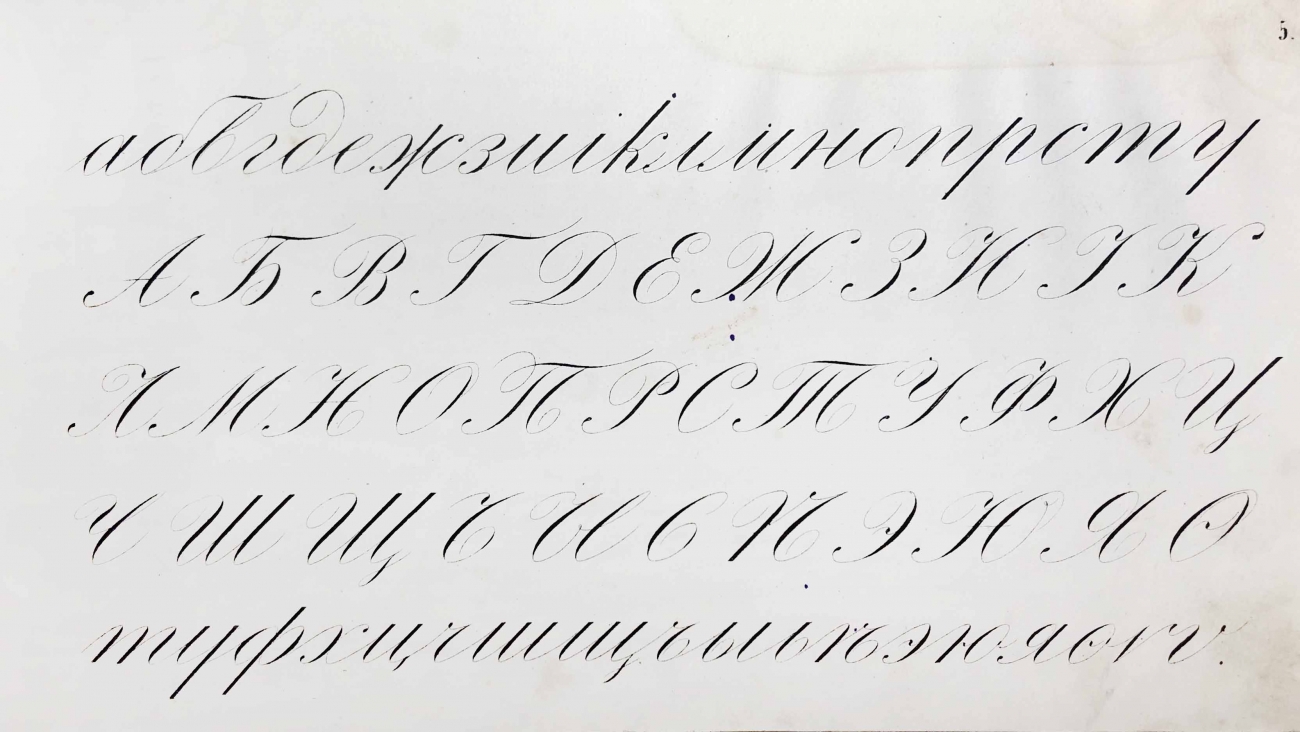 5.
абвгдежзиіклмнопрсту
А Б В Г Д Е Ж З И І К
Л М Н О П Р С Т У Ф Х Ц
Ч Ш Щ Ъ Ы Ь Ѣ Э Ю Я Ѳ
туфхцчшщъыьѣэюяѳѵ.